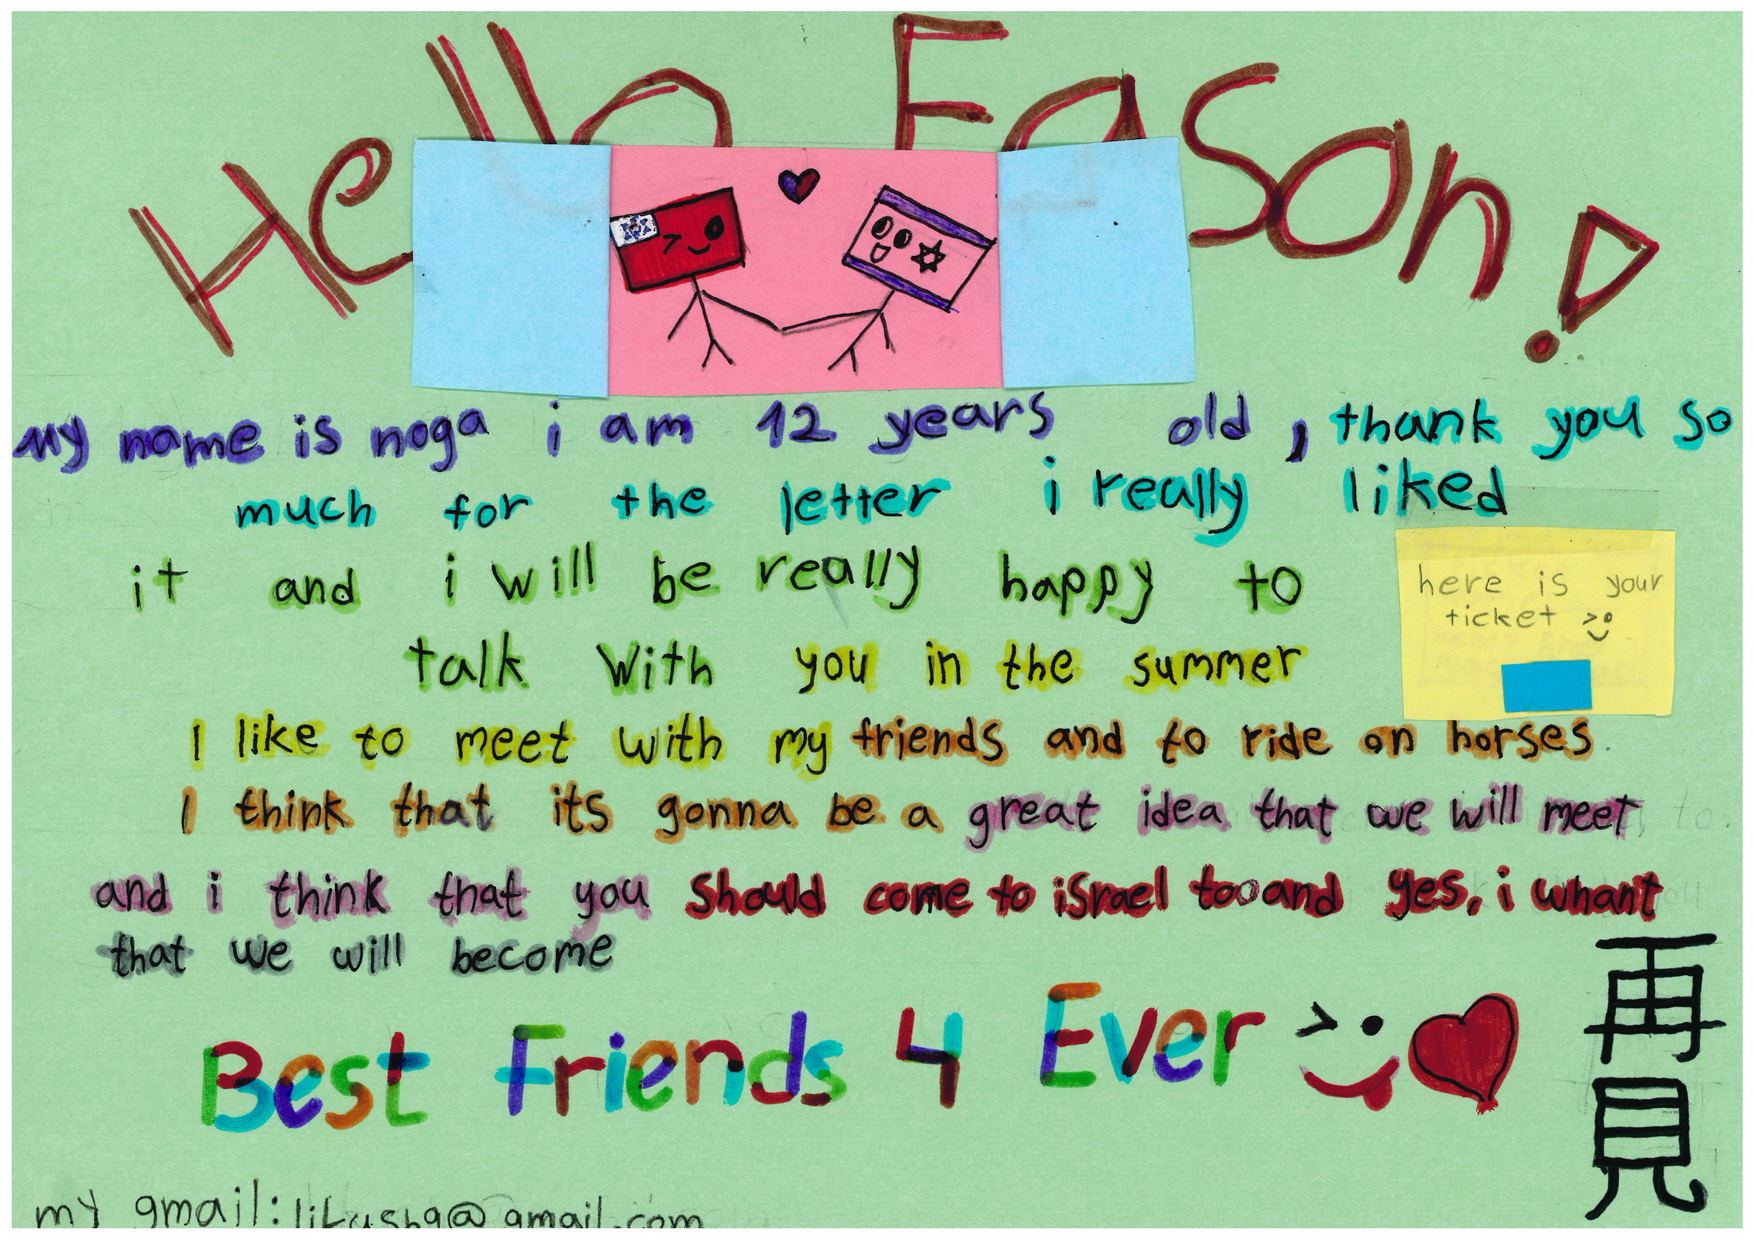 Hello Eason!
my name is noga i am 12 years old, thank you so
much for the letter i really liked
it and i will be really happy to
talk with you in the summer
here is your
ticket
I like to meet with my friends and to ride on horses
I think that its gonna be a great idea that we will meet
and i think that you should come to israel too and yes, i whant
that we will become
Best Friends 4 Ever
再見
my gmail: @gmail.com